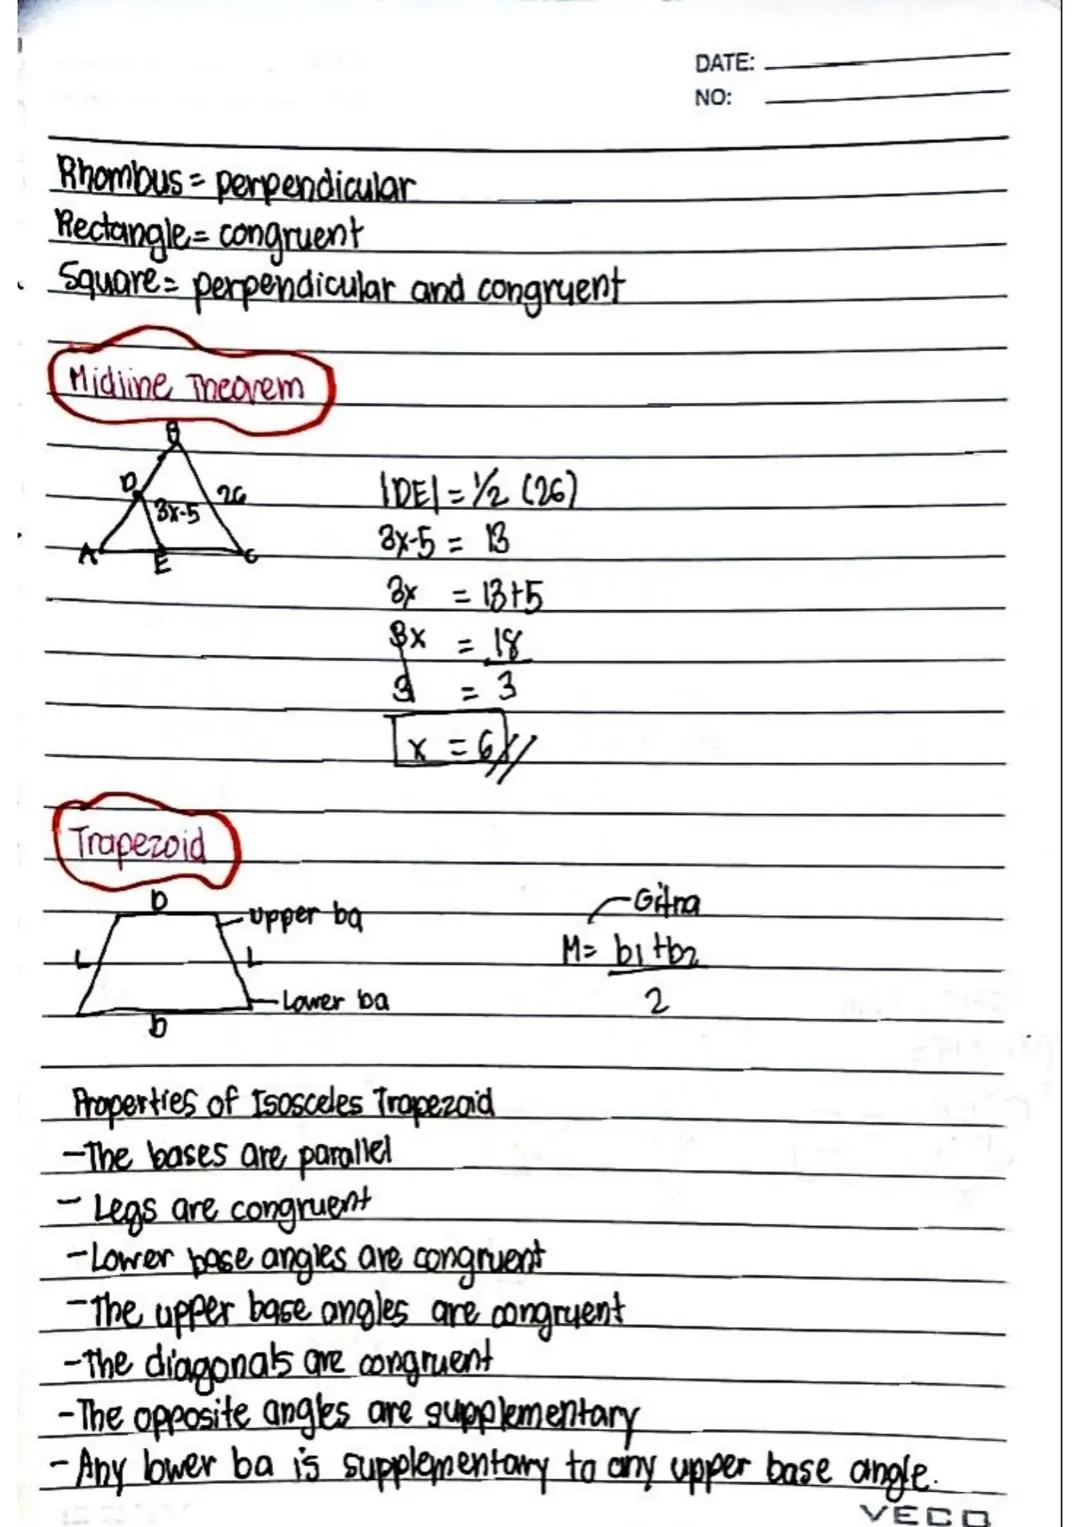 DATE:
NO:
Rhombus = perpendicular
Rectangle = congruent
Square = perpendicular and congruent
Midline Theorem
B
D
26
3x-5
A
E
C
|DE| = 1/2 (26)
3x-5 = 13
3x = 13+5
3x = 18
3 = 3
x = 6//
Trapezoid
b
upper ba
L
L
Lower ba
b
Gitna
M= b1+b2
2
Properties of Isosceles Trapezoid
-The bases are parallel
- Legs are congruent
-Lower base angles are congruent
-The upper base angles are congruent
-The diagonals are congruent
-The opposite angles are supplementary
-Any lower ba is supplementary to any upper base angle.
VECO